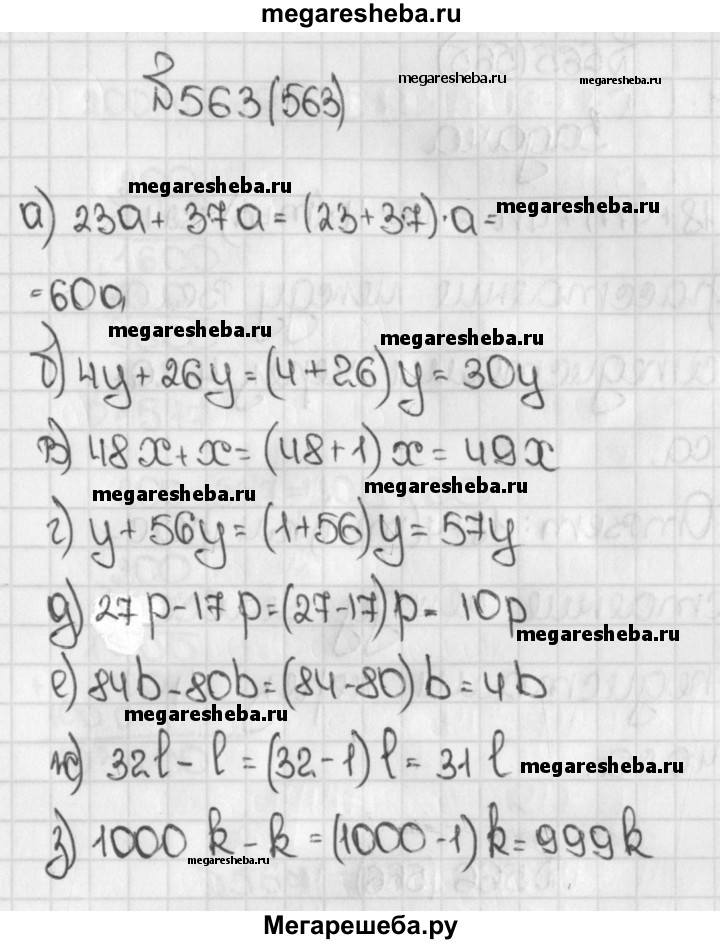 megaresheba.ru
№563(563)
megaresheba.ru
megaresheba.ru
megaresheba.ru
megaresheba.ru
а) 23a + 37a = (23+37)·a =
= 60a
megaresheba.ru
megaresheba.ru
б) 4y + 26y = (4+26)y = 30y
в) 48x + x = (48+1)x = 49x
megaresheba.ru
megaresheba.ru
г) y + 56y = (1+56)y = 57y
д) 27p - 17p = (27-17)p = 10p
megaresheba.ru
е) 84b - 80b = (84-80)b = 4b
megaresheba.ru
ж) 32l - l = (32-1)l = 31 l
megaresheba.ru
з) 1000 k - k = (1000-1)k = 999k
megaresheba.ru
Мегарешеба.ру